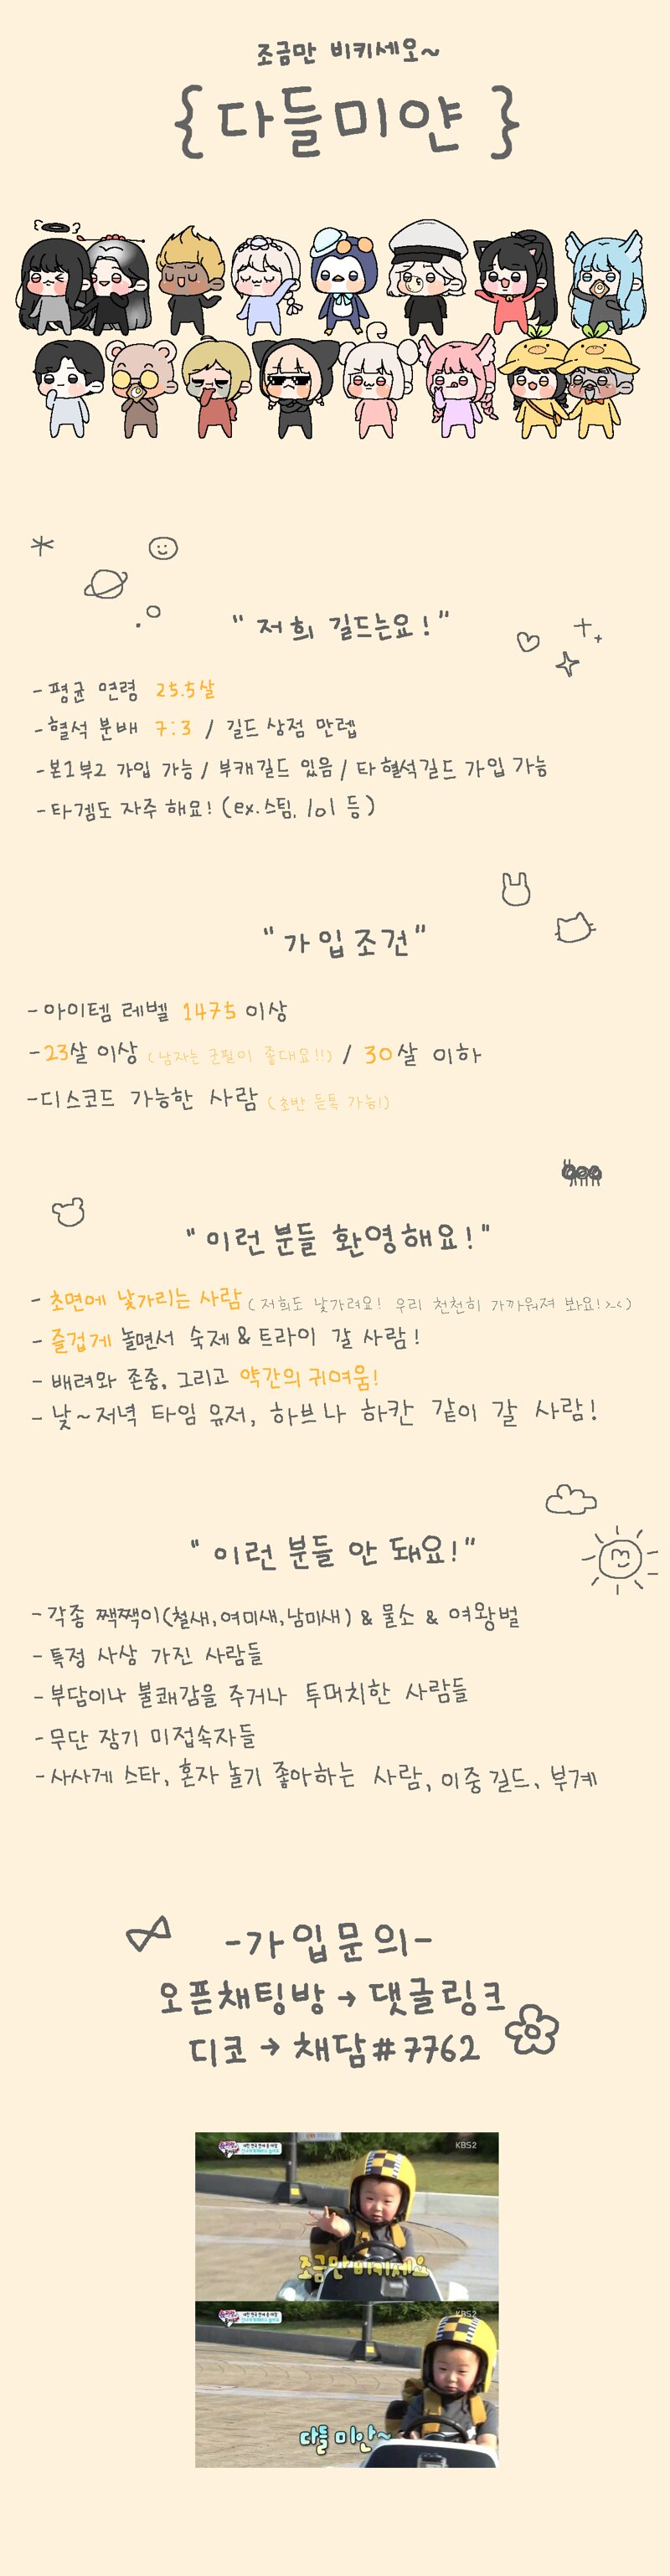 조금만 비키세오~
{다들미얀}
"저희 길드는요!"
-평균 연령 25.5살
-혈석 분배 7:3 / 길드 상점 만렙
-본1부2 가입 가능 / 부캐길드 있음 / 타혈석길드 가입 가능
-타겜도 자주 해요! (ex.스팀, lol 등)
"가입조건"
-아이템 레벨 1475 이상
-23살 이상 (남자는 군필이 좋대요!!) / 30살 이하
-디스코드 가능한 사람 (초반 듣톡 가능!)
"이런 분들 환영해요!"
- 초면에 낯가리는 사람 (저희도 낯가려요! 우리 천천히 가까워져 봐요!><)
- 즐겁게 놀면서 숙제 & 트라이 갈 사람!
- 배려와 존중, 그리고 약간의 귀여움!
- 낮~저녁 타임 유저, 하브나 하칸 같이 갈 사람!
"이런 분들 안 돼요!"
-각종 짹짹이(철새,여미새,남미새) & 물소 & 여왕벌
-특정 사상 가진 사람들
-부담이나 불쾌감을 주거나 투머치한 사람들
-무단 장기 미접속자들
-사사게 스타, 혼자 놀기 좋아하는 사람, 이중길드, 부계
-가입문의-
오픈채팅방→댓글링크
디코→채담#7762
KBS2
조금만 비키세요
KBS2
다들 미안~